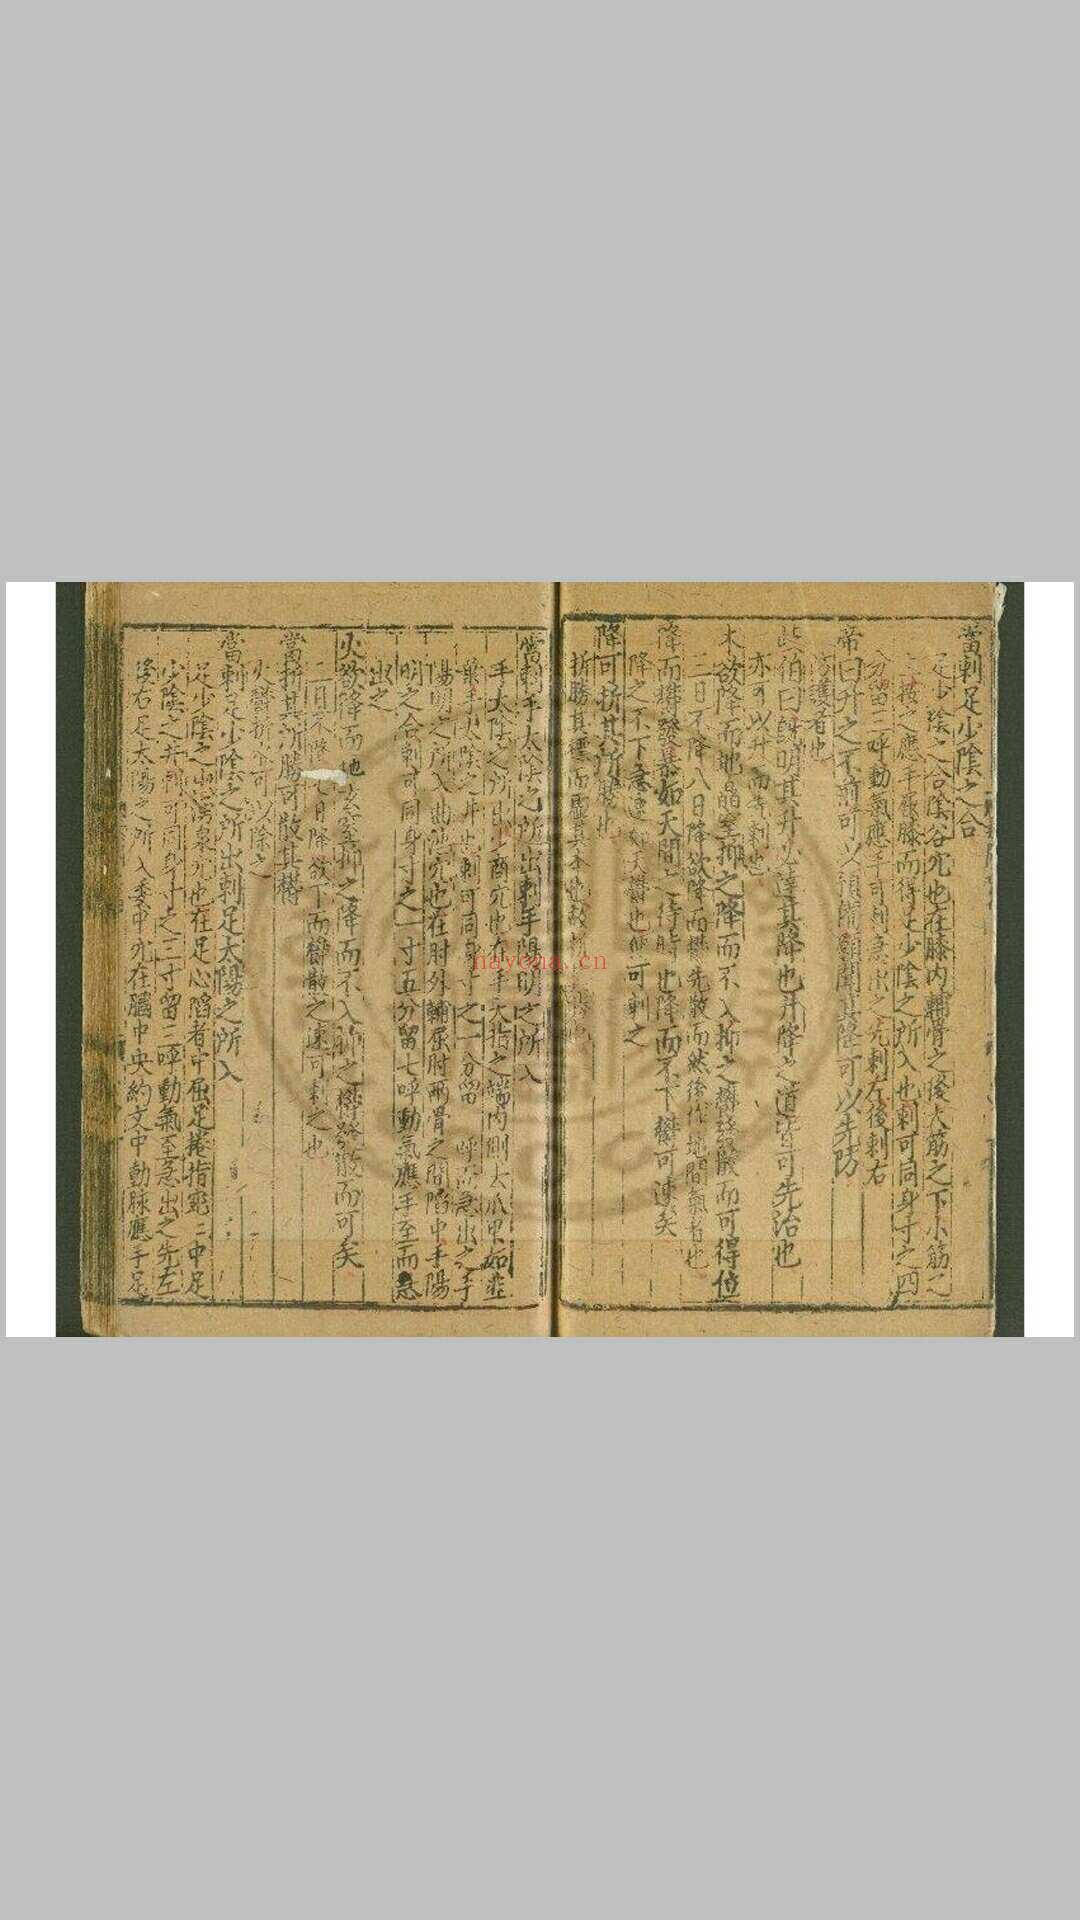 當刺足少陰之合
足少陰之合陰谷穴也在膝内輔骨之後大筋之下小筋之
上按之應手屈膝而得之足少陰之所入也刺可同身寸之四
分留三呼動氣應手可刺急出之先刺左後刺右
帝曰升之不前可以預備願聞其降可以先防
岐伯曰既明其升必達其降也升降之道皆可先治也
亦可以升而先刺也
木欲降而地晶窒抑之降而不入抑之鬱發散而可得位
二日不降八日降欲降而鬱先散而然後作地間氣者也
降而鬱發暴如天間之待時也降而不下鬱可速矣
降之不下急速如天鬱也便可刺之
降可折其所勝也
折勝其
當刺手太陰之所出刺手陽明之所入
手太陰之所出少商穴也在手大指之端内側去爪甲如韭
葉手太陰之井也刺可同身寸之一分留 呼而急出之手
陽明之所入曲池穴也在肘外輔屈肘兩骨之間陷中手陽
明之合刺可同身寸之一寸五分留七呼動氣應手至而急
出之
火欲降而地玄窒抑之降而不入抑之鬱發散而可矣
二日不降 日降欲下而鬱散之速可刺之也
當折其所勝可散其鬱
火鬱折水可以除之
當刺足少陰之所出刺足太陽之所入
足少陰之出湧泉穴也在足心陷者中屈足捲指宛宛中足
少陰之井刺可同身寸之三寸留三呼動氣至急出之先左
後右足太陽之所入委中穴在膕中央約文中動脉應手足
nayona.cn